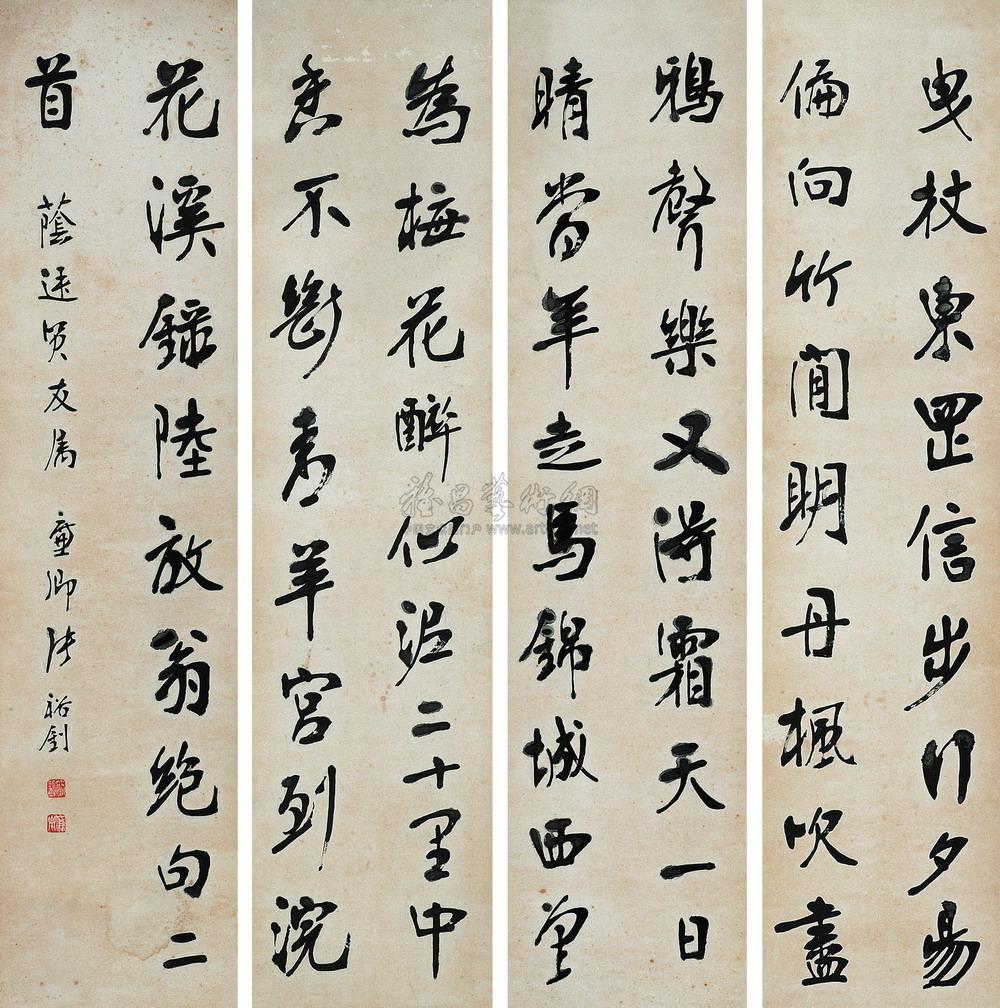 曳杖東罡信步行夕昜
偏向竹間明丹楓吹盡
鴉聲樂又得霜天一日
晴當年走馬錦城西曾
為梅花醉似泥二十里中
香不斷青羊宮到浣
花溪錄陸放翁絕句二
首
蔭 賢友属 廉卿張裕釗
雅昌藝術網